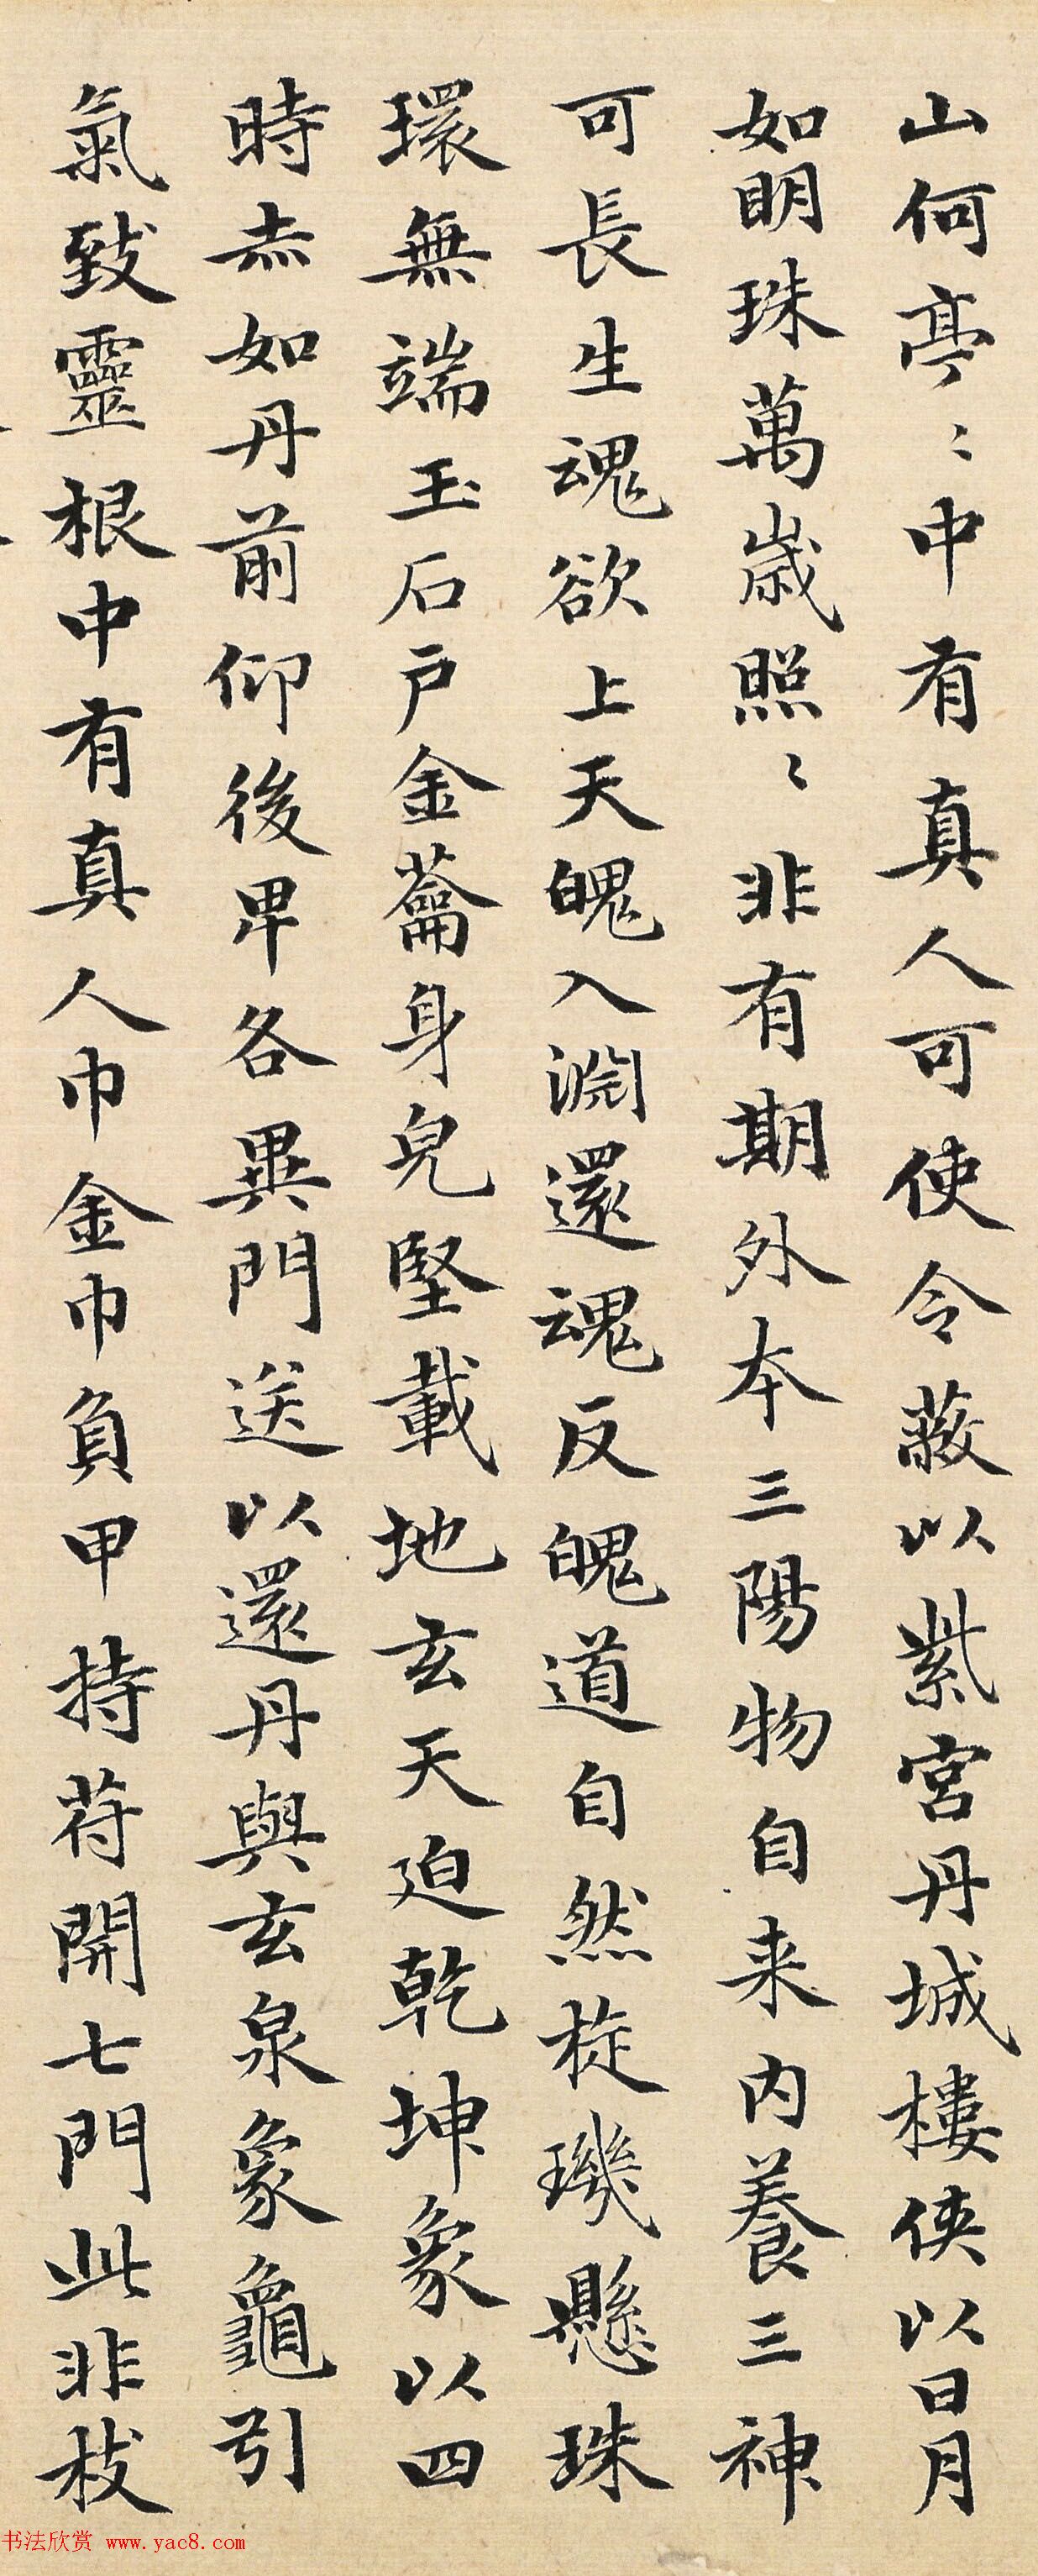 山何亭〻中有真人可使令蔽以紫宮丹城樓俠以日月
如明珠萬歲照〻非有期外本三陽物自来內養三神
可長生魂欲上天魄入淵還魂反魄道自然旋璣懸珠
環無端玉石戶金籥身皃堅載地玄天迫乾坤象以四
時赤如丹前仰後卑各異門送以還丹與玄泉象龜引
氣致靈根中有真人巾金巾負甲持苻開七門此非枝
书法欣赏 www.yac8.com